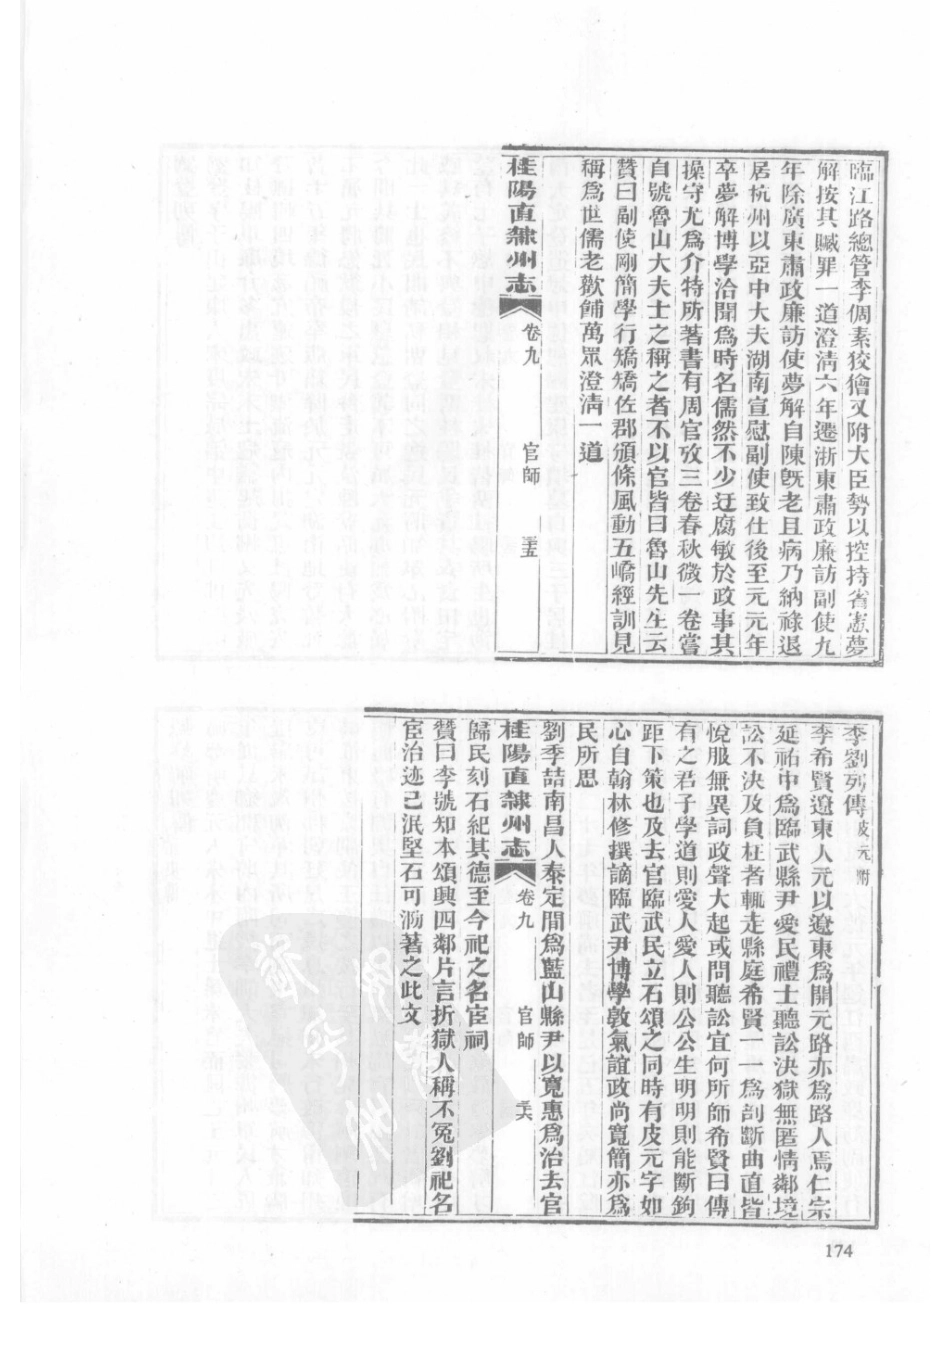 臨江路總管李倜素狡獪又附大臣勢以控持省憲夢
解按其贓罪一道澄淸六年遷浙東肅政廉訪副使九
年除廣東肅政廉訪使夢解自陳旣老且病乃納祿退
居杭州以亞中大夫湖南宣慰副使致仕後至元元年
卒夢解博學洽聞爲時名儒然不少迂腐敏於政事其
操守尤爲介特所著書有周官攷三卷春秋微一卷嘗
自號魯山大夫士之稱之者不以官皆曰魯山先生云
贊曰副使剛簡學行矯矯佐郡頒條風動五嶠經訓見
稱爲世儒老歡餔萬眾澄淸一道
桂陽直隸州志 卷九 官師 三五
李劉列傳皮元附
李希賢遼東人元以遼東爲開元路亦爲路人焉仁宗
延祐中爲臨武縣尹愛民禮士聽訟決獄無匿情鄰境
訟不決及負枉者輒走縣庭希賢一一爲剖斷曲直皆
悅服無異詞政聲大起或問聽訟宜何所師希賢曰傳
有之君子學道則愛人愛人則公公生明明則能斷鉤
距下策也及去官臨武民立石頌之同時有皮元字如
心自翰林修撰謫臨武尹博學敦氣誼政尚寬簡亦爲
民所思
劉季喆南昌人泰定間爲藍山縣尹以寬惠爲治去官
桂陽直隸州志 卷九 官師 三六
歸民刻石紀其德至今祀之名宦祠
贊曰李號知本頌興四鄰片言折獄人稱不冤劉祀名
宦治迹已泯堅石可泐著之此文
174